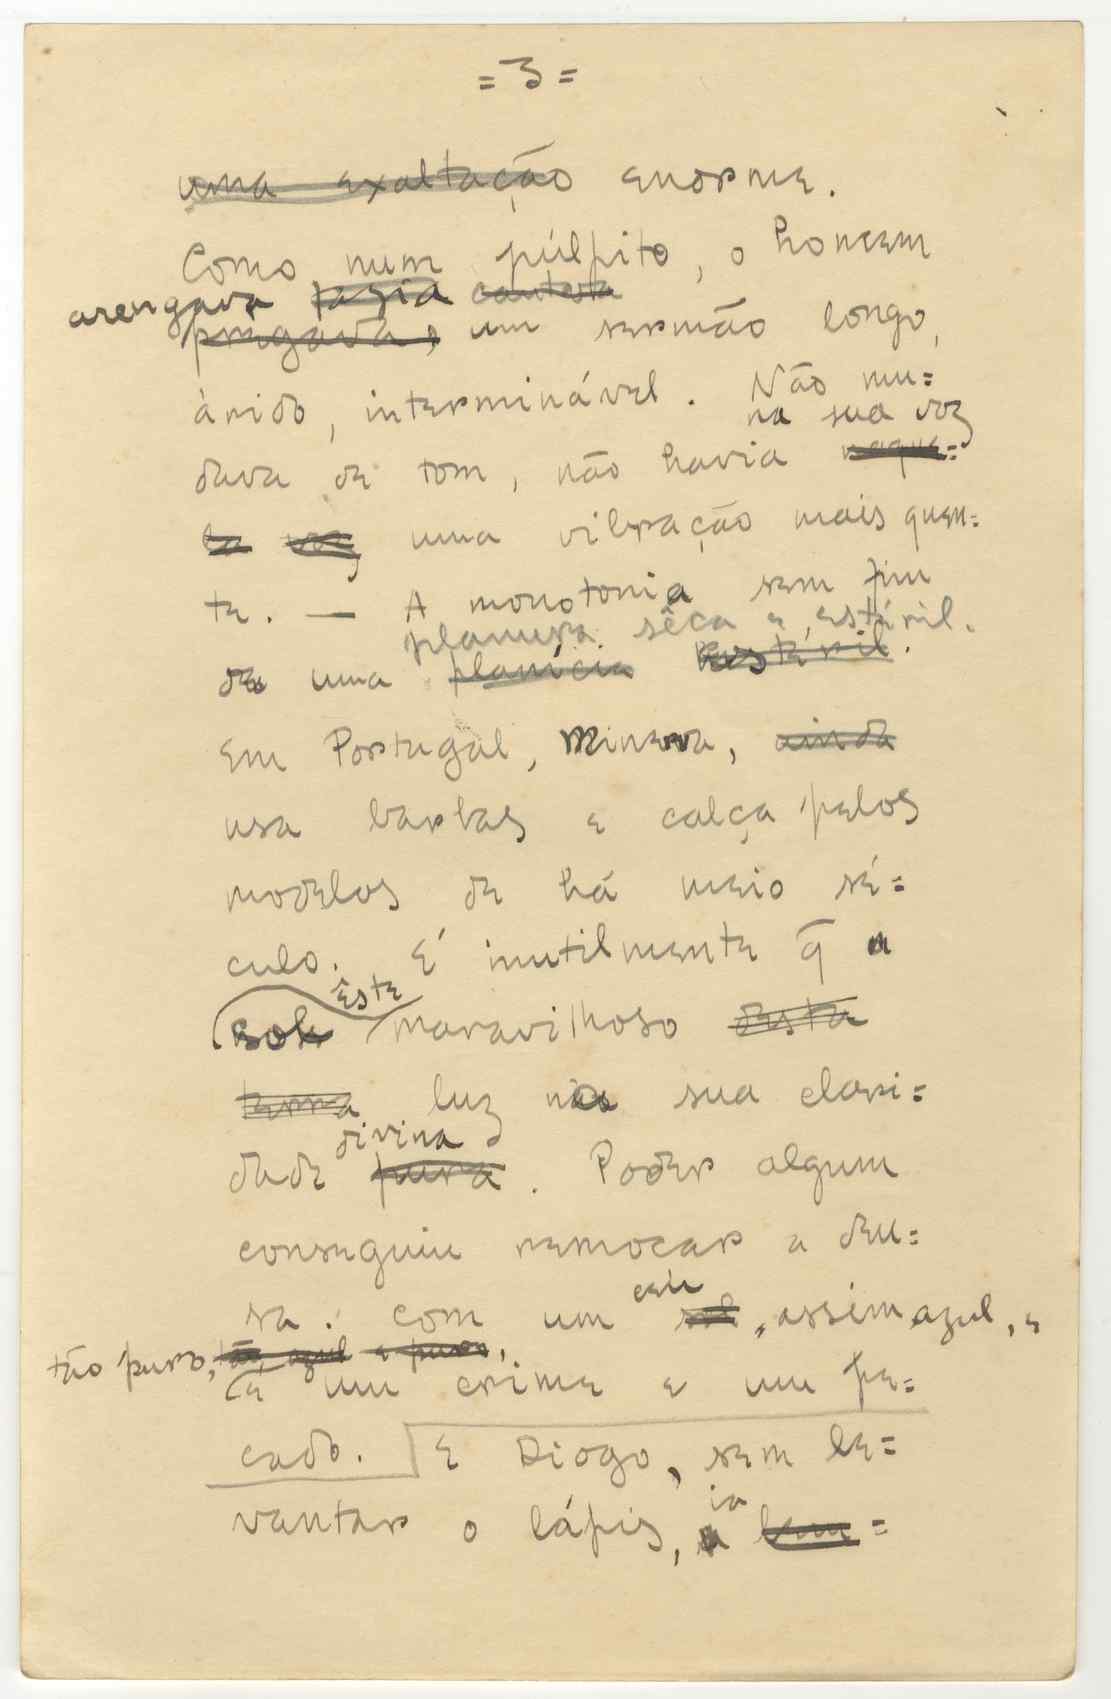 = 3 =
uma exaltação enorme.
Como num púlpito, o homem
arengava fazia
pregava, um sermão longo,
árido, interminável. Não mu=
na sua voz
dava de tom, não havia naque=
la voz uma vibração mais quen=
te. — A monotonia sem fim
planura sêca e estéril.
de uma planície estéril.
Em Portugal, Minerva, ainda
usa barbas e calça pelos
modelos de há meio sé=
culo. É inutilmente q̃ a
êste
sol maravilhoso desta
terra luz na sua clari=
divina
dade pura. Poder algum
conseguiu remoçar a deu=
ceu
sa. Com um sol, assim azul, e
tão puro, tão azul e puro,
é um crime e um pe=
cado. E Diogo, sem le=
ia
vantar o lápis, a